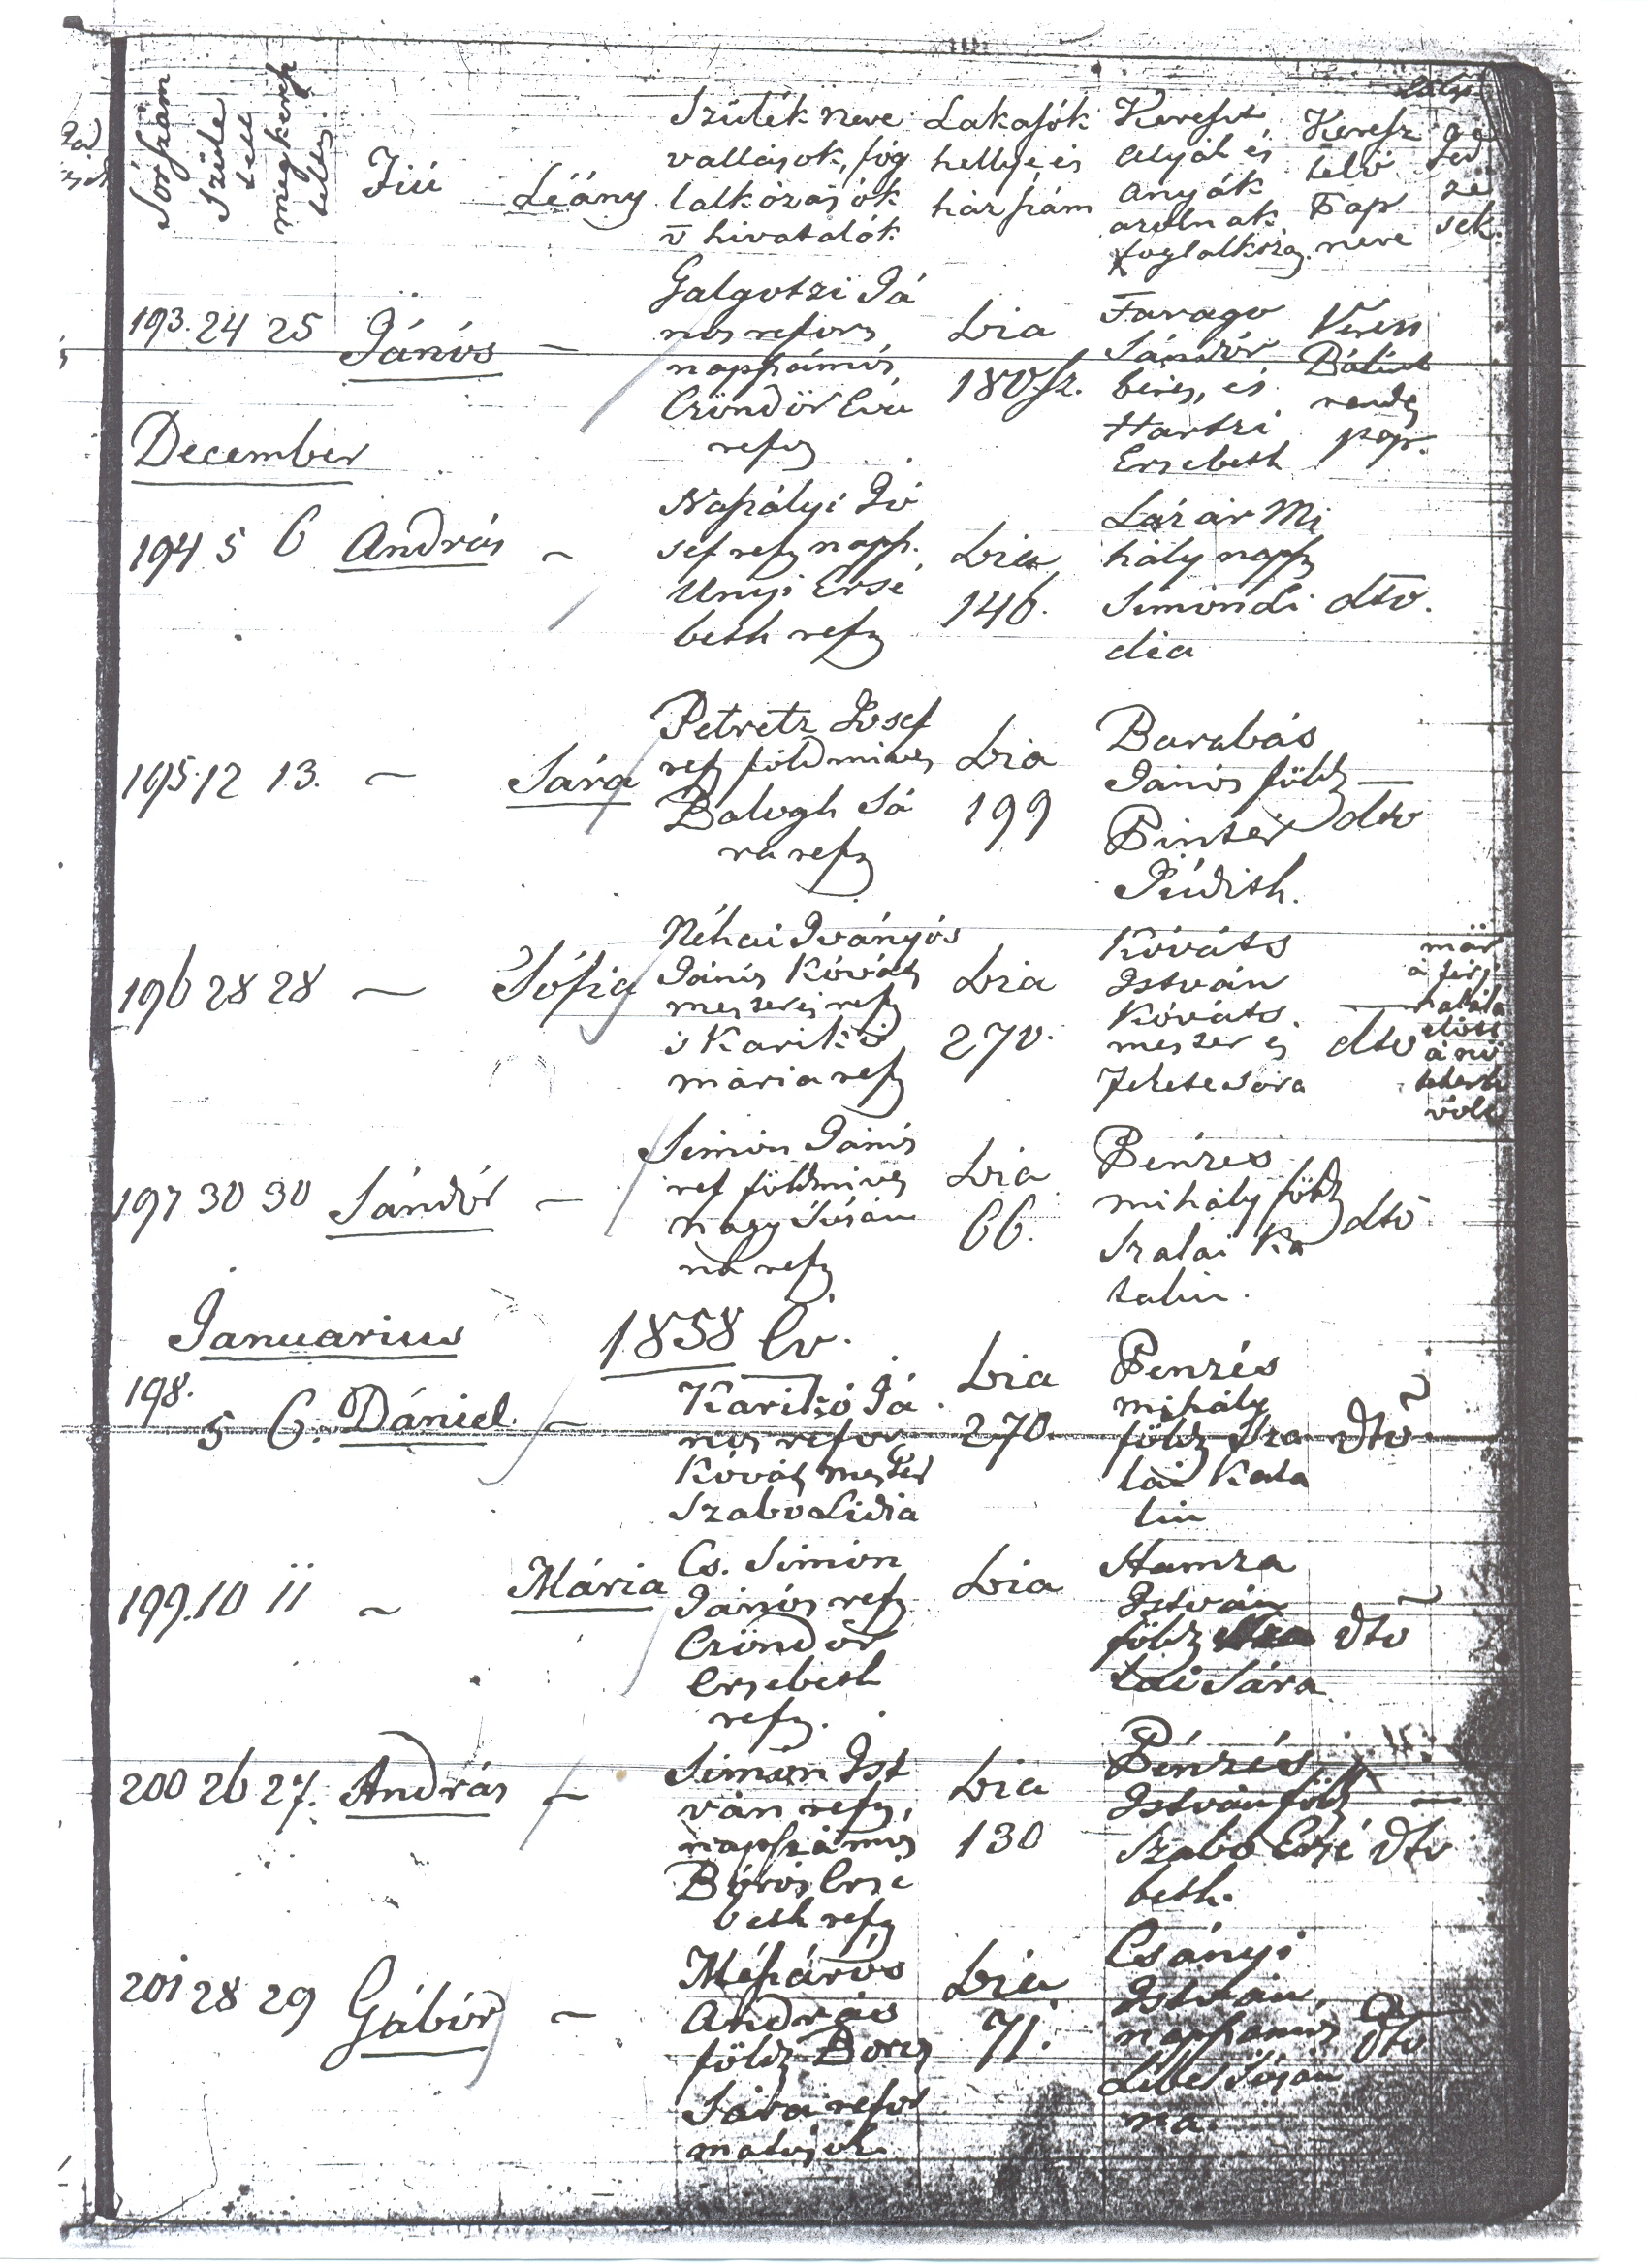 Sorszám
Szüle
tett
megkeresz
telt.
Fiú
Leány
Szülék neve
vallások, fog
lalkozások
v hivatalók
Lakasók
hellye, és
házszám
Kereszt
atyák és
anyák
azoknak
foglalkozás.
Keresz
telö
Pap
neve
193. 24 25 János –
Galgotzi Já
nos refors
napszámos
Czöndör Éva
refs
Bia
180 sz.
Farago
Sándór
béres, és
Hartzi
Ersebeth
Veress
Bálint
rendes
pap.
December
194 5 6 András –
Naszályi Jó
sef refs napsz.
Unyi Ersé
beth refs
Bia
146.
Lázár Mi
hály napsz
Simon Li
dia
dto.
195. 12 13. – Sára
Petretz Josef
refs földmives
Balogh Sá
ra refs
Bia
199
Barabás
János földs
Pinter
Júdith.
dto
196 28 28 – Sófia
Néhai Iványós
János Kováts
mesteres refs
s Karikó
mária refs
Bia
270.
Kováts
István
Kováts
mester és
Fekete Sára
dto
már
a férj
halála
elött
a nö
teherb
vólt
197 30 30 Sándór –
Simon János
ref földmives
Nagy Susán
na refs
Bia
66.
Penzes
mihály földs
Szalai Ka
talin.
dto
Januarius 1858 Év.
198.
5 6. Dániel. –
Karikó Já
nos refor
Kováts mester
Szabo Lidia
Bia
270.
Penzés
mihály
földs Sza
lai Kata
lin
dto
199. 10 11 – Mária
Cs. Simon
János refs
Czöndör
Ersebeth
refs.
Bia
Hamza
István
földs
tai Sára
dto
200 26 27. András –
Simon Ist
ván refs,
napszámos
Bóros Ersé
beth refs
Bia
130
Pénzés
István földs
Szabó Ersé
beth.
dto
201 28 29 Gábór –
Mészárós
András
földs Boros
Sára refor
matusok
Bia
71.
Csányi
István
napszamos
Susán
na.
dto